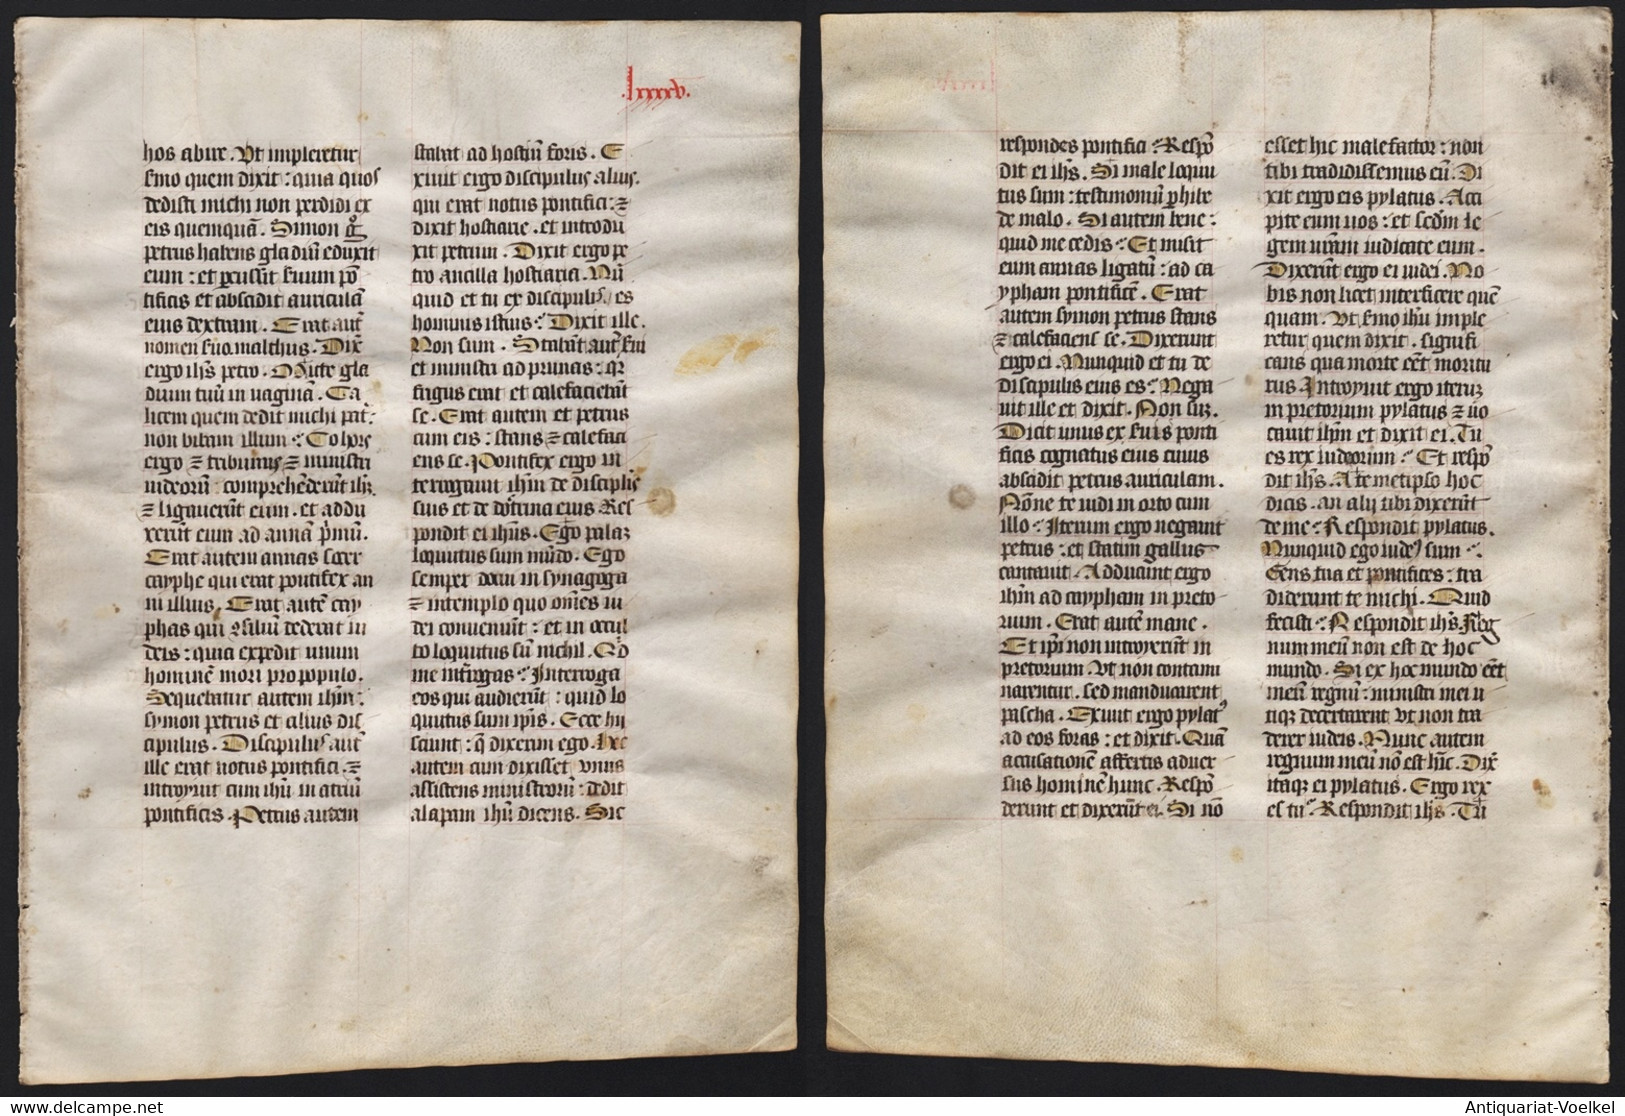 .lxxxxv.
hos abire. Vt impleretur
sermo quem dixit: quia quos
dedisti michi non perdidi ex
eis quemquā. Simon g°
petrus habens gladiū eduxit
eum: et percussit seruum pō
tificis et abscidit auriculā
eius dextram. Erat aūt
nomen seruo malthus. Dix̄
ergo ih̄s petro. Mitte gla
dium tuū in vaginā. Ca
licem quem dedit michi pat̄:
non bibam illum: Cohors
ergo ⁊ tribunus ⁊ ministri
iudeorū: comprehēderūt ih̄z
⁊ ligauerūt eum. et addu
xerūt eum ad annā p̄mū.
Erat autem annas socer
cayphe qui erat pontifex an
ni illius. Erat autē cay
phas qui ꝯsiliū dederat iu
deis: quia expedit unum
hominē mori pro populo.
Sequebatur autem ih̄m:
symon petrus et alius dis
cipulus. Discipulus aūt
ille erat notus pontifici. ⁊
introyuit cum ih̄u in atriū
pontificis. Petrus autem
stabat ad hostiū foris. E
xiuit ergo discipulus alius.
qui erat notus pontifici: ⁊
dixit hostiarie. et introdu
xit petrum. Dixit ergo pe
tro ancilla hostiaria. Nū
quid et tu ex discipulis es
hominis istius: Dixit ille.
Non sum. Stabāt aūt serui
et ministri ad prunas: qr̄
frigus erat et calefaciebāt
se. Erat autem et petrus
cum eis: stans ⁊ calefaci
ens se. Pontifex ergo in
terogauit ih̄m de discipl̄is
suis et de doctrina eius. Res
pondit ei ih̄us. Ego palaz
loquutus sum mūdo. Ego
semper docui in synagoga
⁊ in templo quo om̄es iu
dei conueniūt: et in occul
to loquutus sū nichil. Qd
me int̄rogas: Interroga
eos qui audierūt: quid lo
quutus sum ip̄is. Ecce hii
sciunt: q̄ dixerim ego. Hec
autem cum dixisset vnus
assistens ministrorū: dedit
alapam ih̄ū dicens. Sic
respondes pontifici: Respō
dit ei ih̄s. Si male loquu
tus sum: testimoniū p̲hibe
de malo. Si autem bene:
quid me cedis: Et misit
eum annas ligatū: ad ca
ypham pontificē. Erat
autem symon petrus stans
⁊ calefaciens se. Dixerunt
ergo ei. Nunquid et tu de
discipulis eius es: Nega
uit ille et dixit. Non suz.
Dicit unus ex suis ponti
ficis cognatus eius cuius
abscidit petrus auriculam.
Nōne te uidi in orto cum
illo: Iterum ergo negauit
petrus: et statim gallus
cantauit. Adducunt ergo
ih̄m ad caypham in preto
rium. Erat autē mane.
Et ip̄i non introyerūt in
pretorium. vt non contami
narentur. sed manducarent
pascha. Exiuit ergo pylat9
ad eos foras: et dixit. Quā
acusationē affertis aduer
sus hominē hunc. Respō
derunt et dixerūt ei. Si nō
esset hic malefactor: non
tibi tradidissemus eū. Di
xit ergo eis pylatus. Acci
pite eum uos: et scd̄m le
gem ur̄am iudicate eum.
Dixerūt ergo ei iudei. No
bis non licet interficere quē
quam. Vt sermo ih̄u imple
retur quem dixit. signifi
cans qua morte eēt moritu
rus Introyuit ergo iteruz
in pretorium pylatus ⁊ uo
cauit ih̄m et dixit ei. Tu
es rex iudeorum: Et respō
dit ih̄s. A temetipso hoc
dicis. an alij tibi dixerūt
de me: Respondit pylatus.
Nunquid ego iude9 sum:
Gens tua et pontifices: tra
diderunt te michi. Quid
fecisti: Respondit ih̄s. Reg
num meū non est de hoc
mundo. Si ex hoc mundo eēt
meū regnū: ministri mei u
tiqz decertarent vt non tra
derer iudeis. Nunc autem
regnum meū nō est hīc. Dix̄
itaqz ei pylatus. Ergo rex
es tu: Respondit ih̄s. Tu
Antiquariat-Voelkel
www.delcampe.net